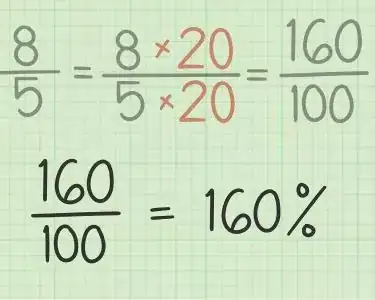 8/5 = 8 × 20/5 × 20 = 160/100
160/100 = 160%